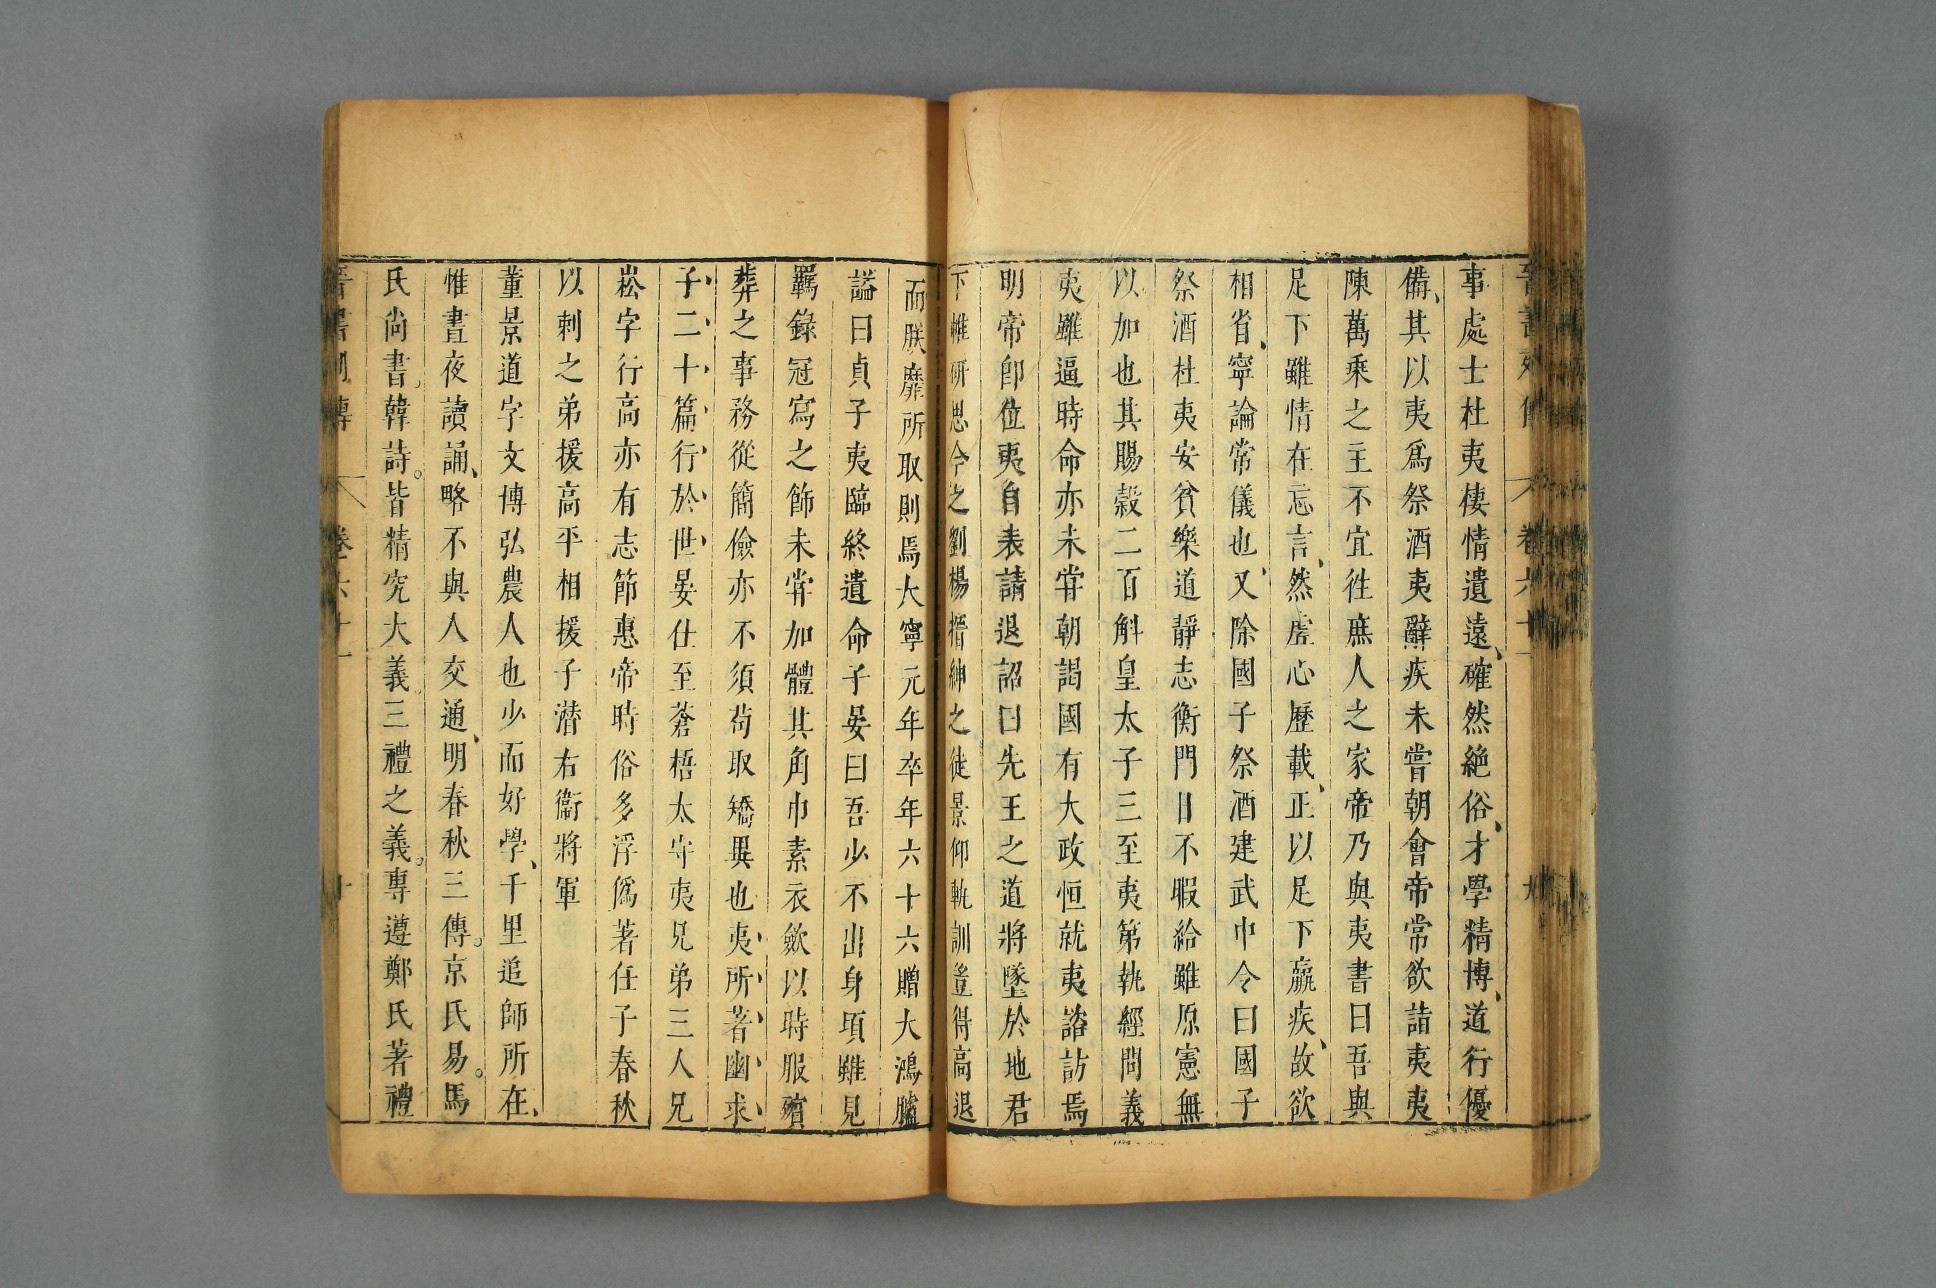 晉書列傳 卷六十一 九
事處士杜夷棲情遺遠確然絕俗才學精博道行優
備其以夷爲祭酒夷辭疾未嘗朝會帝常欲詣夷夷
陳萬乘之主不宜徃庶人之家帝乃與夷書曰吾與
足下雖情在忘言然虛心歷載正以足下羸疾故欲
相省寧論常儀也又除國子祭酒建武中令曰國子
祭酒杜夷安貧樂道靜志衡門日不暇給雖原憲無
以加也其賜穀二百斛皇太子三至夷第執經問義
夷雖逼時命亦未甞朝謁國有大政恒就夷諮訪焉
明帝卽位夷自表請退詔曰先王之道將墜於地君
下帷研思今之劉楊搢紳之徒景仰軌訓豈得高退
而朕靡所取則焉大寧元年卒年六十六贈大鴻臚
謚曰貞子夷臨終遺命子晏曰吾少不出身頃雖見
羈錄冠寫之飾未甞加體其角巾素衣歛以時服殯
葬之事務從簡儉亦不須苟取矯異也夷所著幽求
子二十篇行於世晏仕至蒼梧太守夷兄弟三人兄
崧字行高亦有志節惠帝時俗多浮僞著任子春秋
以刺之弟援高平相援子潛右衞將軍
董景道字文博弘農人也少而好學千里追師所在
惟晝夜讀誦略不與人交通明春秋三傳京氏易馬
氏尚書韓詩皆精究大義三禮之義專遵鄭氏著禮
晉書列傳 卷六十一 十